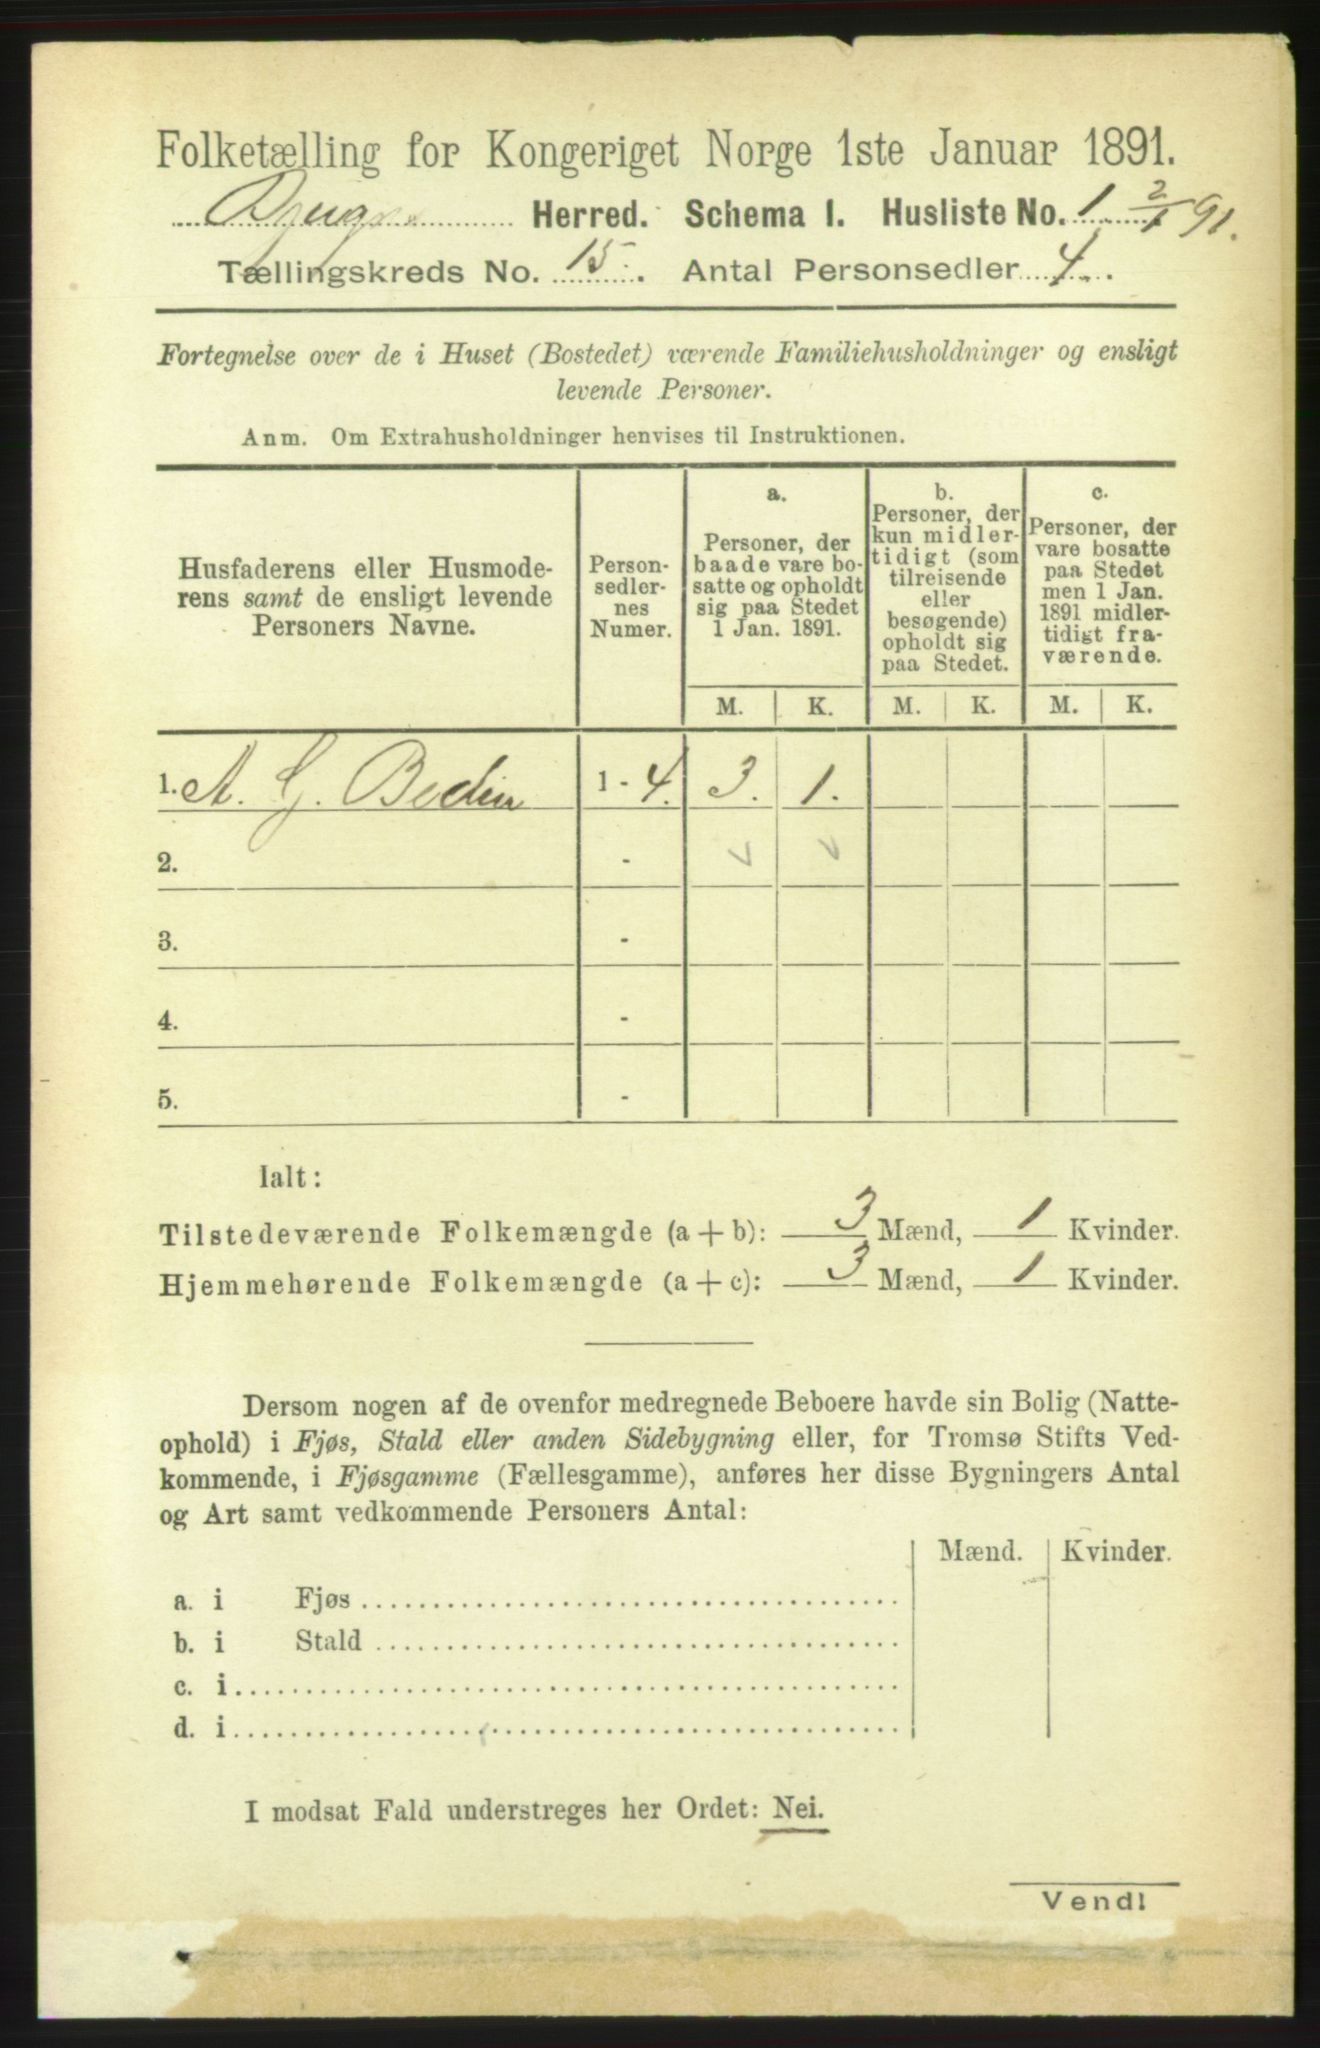 Folketælling for Kongeriget Norge 1ste Januar 1891.
Herred. Schema I. Husliste No. 1 2/1 91.
Tællingskreds No. 15. Antal Personsedler 4.
Fortegnelse over de i Huset (Bostedet) værende Familiehusholdninger og ensligt
levende Personer.
Anm. Om Extrahusholdninger henvises til Instruktionen.
Husfaderens eller Husmode-
rens samt de ensligt levende
Personers Navne.
Person-
sedler-
nes
Numer.
a.
Personer, der
baade vare bo-
satte og opholdt
sig paa Stedet
1 Jan. 1891.
b.
Personer, der
kun midler-
tidigt (som
tilreisende
eller
besøgende)
opholdt sig
paa Stedet.
c.
Personer, der
vare bosatte
paa Stedet
men 1 Jan.
1891 midler-
tidigt fra-
værende.
M. K. M. K. M. K.
1. A. G. 1 - 4. 3. 1.
2. -
3. -
4. -
5. -
Ialt:
Tilstedeværende Folkemængde (a + b): 3 Mænd, 1 Kvinder.
Hjemmehørende Folkemængde (a + c): 3 Mænd, 1 Kvinder.
Dersom nogen af de ovenfor medregnede Beboere havde sin Bolig (Natte-
ophold) i Fjøs, Stald eller anden Sidebygning eller, for Tromsø Stifts Ved-
kommende, i Fjøsgamme (Fællesgamme), anføres her disse Bygningers Antal
og Art samt vedkommende Personers Antal:
Mænd. Kvinder.
a. i Fjøs
b. i Stald
c. i
d. i
I modsat Fald understreges her Ordet: Nei.
Vend!